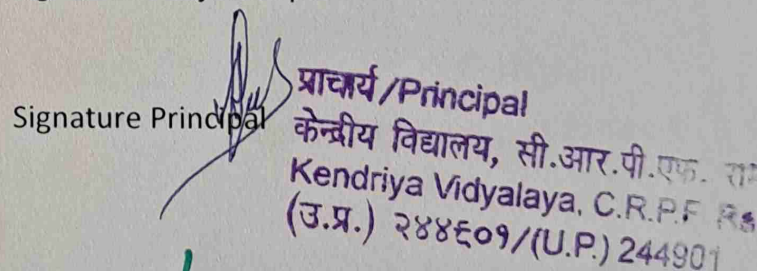 Signature Principal
प्राचार्य/Principal
केन्द्रीय विद्यालय, सी.आर.पी.एफ.
Kendriya Vidyalaya, C.R.P.F
(उ.प्र.) २४४६०१/(U.P.) 244901